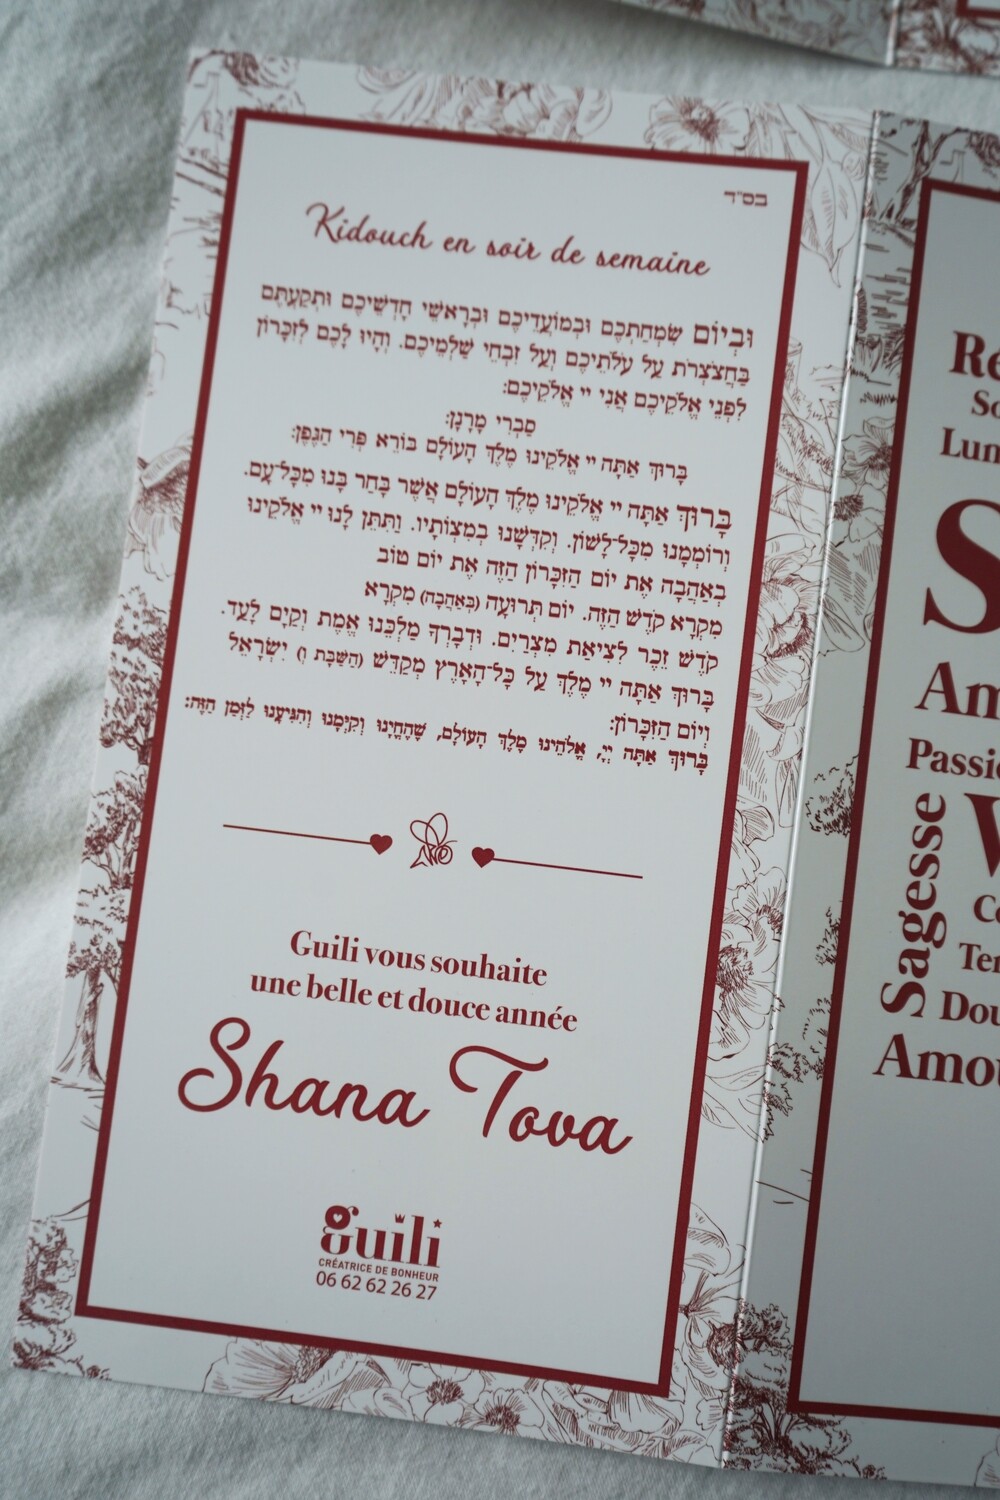 בס״ד
Kidouch en soir de semaine
וּבְיוֹם שִׂמְחַתְכֶם וּבְמוֹעֲדֵיכֶם וּבְרָאשֵׁי חָדְשֵׁיכֶם וּתְקַעְתֶּם
בַּחֲצֹצְרֹת עַל עֹלֹתֵיכֶם וְעַל זִבְחֵי שַׁלְמֵיכֶם. וְהָיוּ לָכֶם לְזִכָּרוֹן
לִפְנֵי אֱלֹקֵיכֶם אֲנִי יי אֱלֹקֵיכֶם:
סַבְרִי מָרָנָן:
בָּרוּךְ אַתָּה יי אֱלֹקֵינוּ מֶלֶךְ הָעוֹלָם בּוֹרֵא פְּרִי הַגֶּפֶן:
בָּרוּךְ אַתָּה יי אֱלֹקֵינוּ מֶלֶךְ הָעוֹלָם אֲשֶׁר בָּחַר בָּנוּ מִכָּל־עָם.
וְרוֹמְמָנוּ מִכָּל־לָשׁוֹן. וְקִדְּשָׁנוּ בְּמִצְוֹתָיו. וַתִּתֶּן לָנוּ יי אֱלֹקֵינוּ
בְּאַהֲבָה אֶת יוֹם הַזִּכָּרוֹן הַזֶּה אֶת יוֹם טוֹב
מִקְרָא קֹדֶשׁ הַזֶּה. יוֹם תְּרוּעָה (בְּאַהֲבָה) מִקְרָא
קֹדֶשׁ זֵכֶר לִצִיאַת מִצְרַיִם. וּדְבָרְךָ מַלְכֵּנוּ אֱמֶת וְקַיָּם לָעַד.
בָּרוּךְ אַתָּה יי מֶלֶךְ עַל כָּל־הָאָרֶץ מְקַדֵּשׁ (הַשַּׁבָּת וְ) יִשְׂרָאֵל
וְיוֹם הַזִּכָּרוֹן:
בָּרוּךְ אַתָּה יְיָ, אֱלֹהֵינוּ מֶלֶךְ הָעוֹלָם, שֶׁהֶחֱיָנוּ וְקִיְּמָנוּ וְהִגִּיעָנוּ לַזְּמַן הַזֶּה:
Guili vous souhaite
une belle et douce année
Shana Tova
guili
CRÉATRICE DE BONHEUR
06 62 62 26 27
Passi
Sagesse
Amou